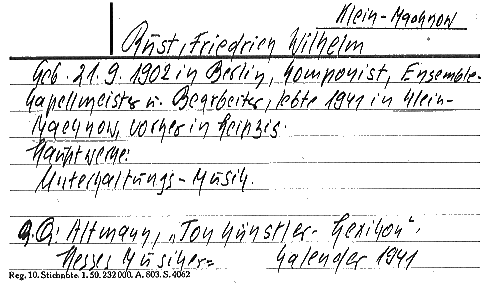 Klein-Machnow
Rust, Friedrich Wilhelm
Geb. 21. 9. 1902 in Berlin, Komponist, Ensemble-
Kapellmeister u. Bearbeiter, lebte 1941 in Klein-
Machnow, vorher in Leipzig.
Hauptwerke:
Unterhaltungs-Musik.
a. Q: Altmann, „Tonkünstler-Lexikon".
Hesses Musiker= Kalender 1941
Reg. 10. Stichnote. 1. 50. 232000. A. 803. S. 4062